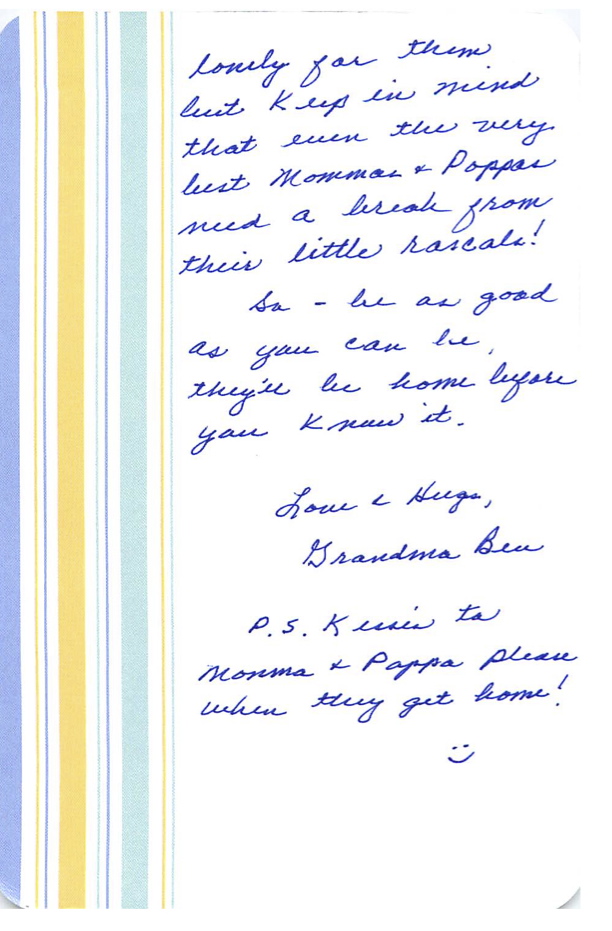 lonely for them
but Keep in mind
that even the very
best Mommas & Poppas
need a break from
their little rascals!
So - be as good
as you can be,
they'll be home before
you Know it.
Love & Hugs,
Grandma Bev
P.S. Kisses to
Momma & Poppa please
when they get home!